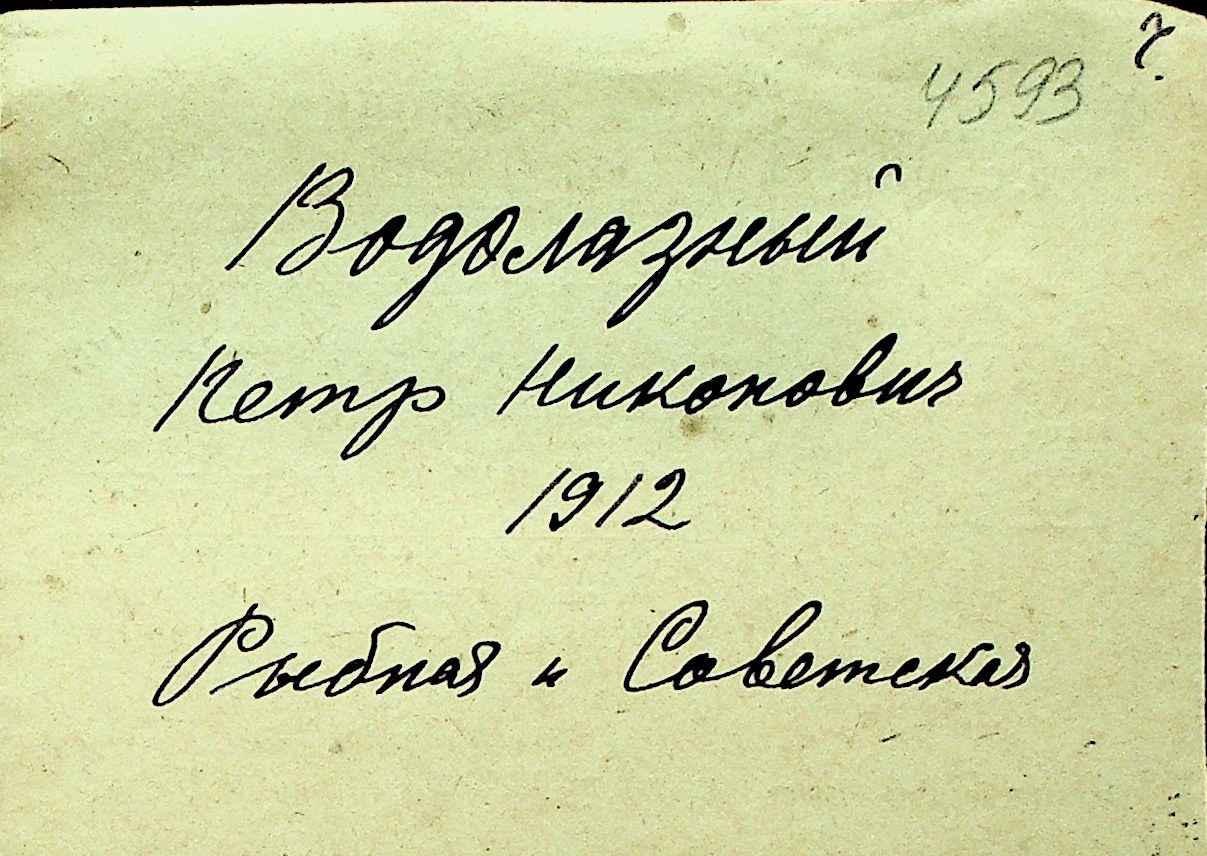 4593
Водолазный
Петр Никонович
1912
Рыбная и Советская